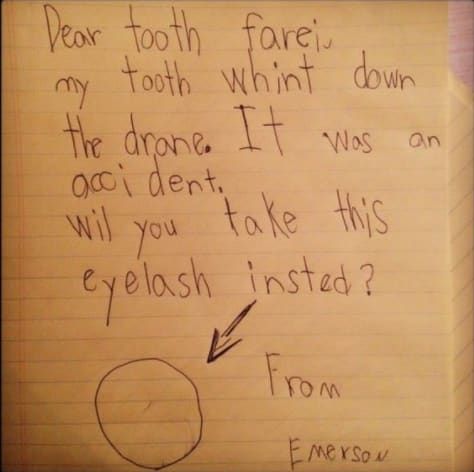 Dear tooth farei.
my tooth whint down
the drane. It was an
accident.
wil you take this
eyelash insted?
From
Emerson